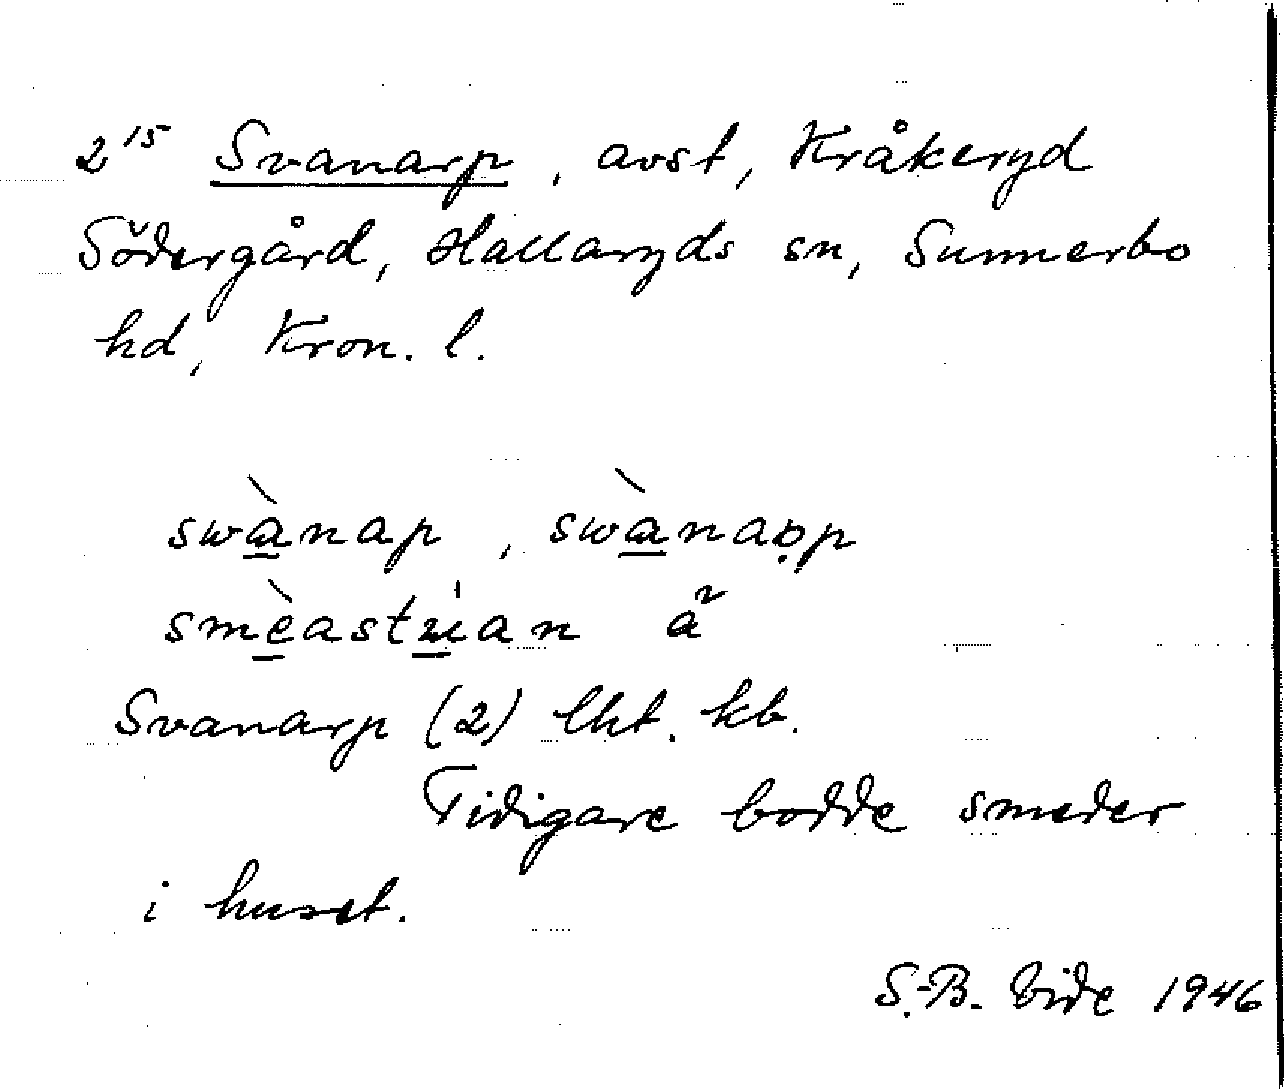 2¹⁵ Svanarp, avst, Kråkeryd
Södergård, Hallaryds sn, Sunnerbo
hd, Kron. l.
swànap, swànaꝛp
smèastúan å̃
Svanarp (2) lht. kb.
Tidigare bodde smeder
i huset.
S.-B. Vide 1946